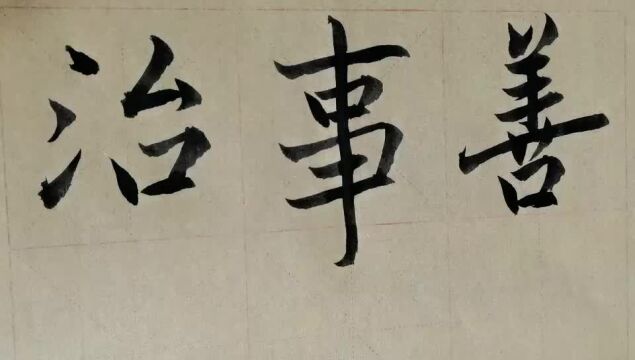 治事善